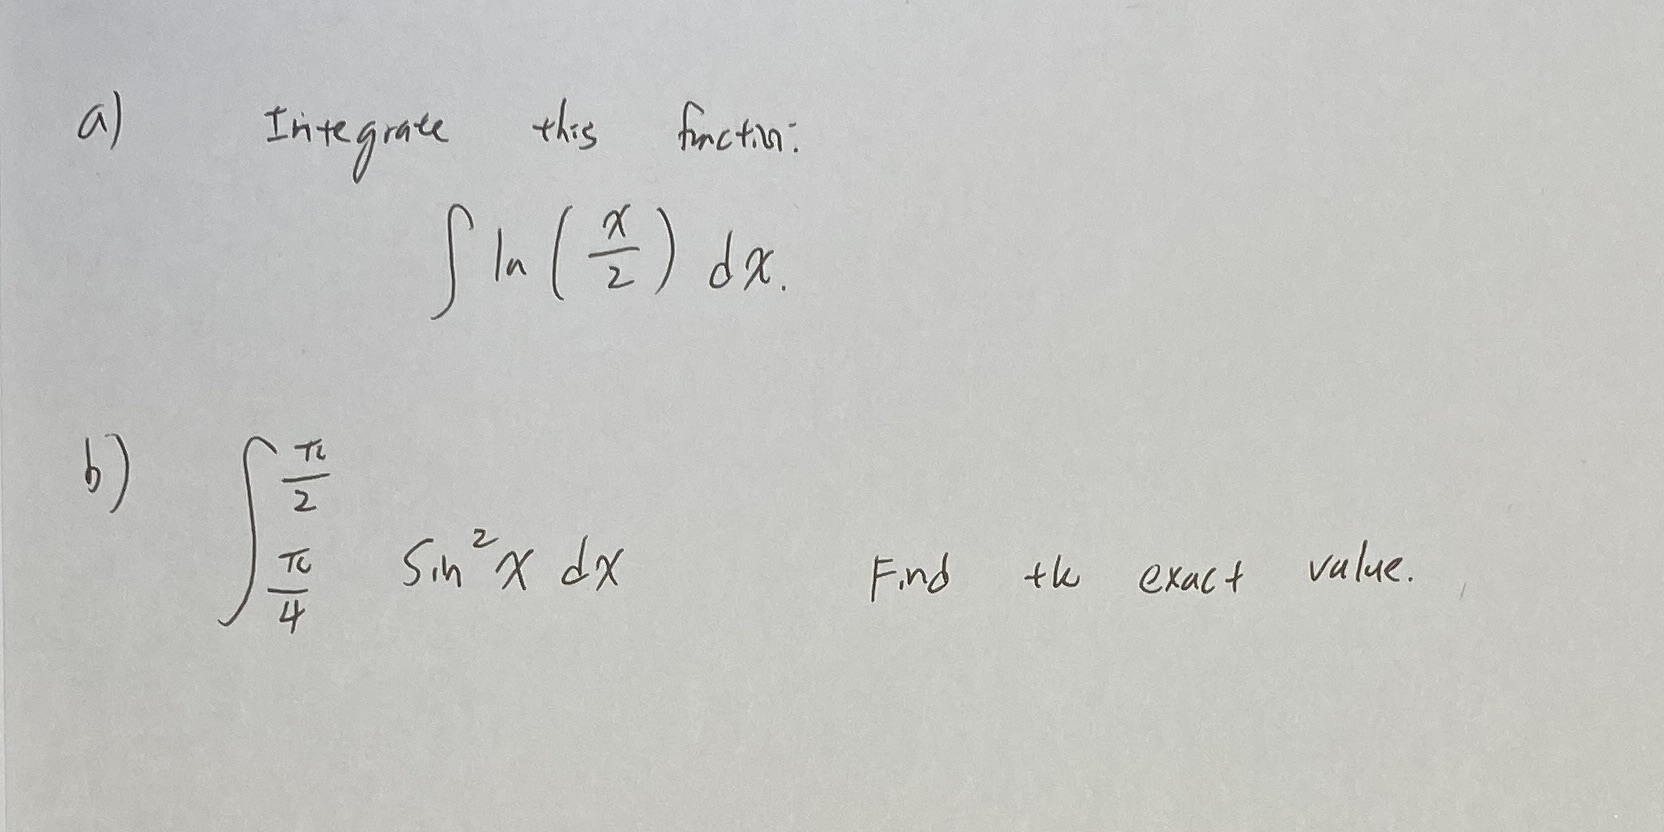 a) Integrate this function:
∫ ln (x/2) dx.
b) ∫_{π/4}^{π/2} Sin²x dx Find the exact value.